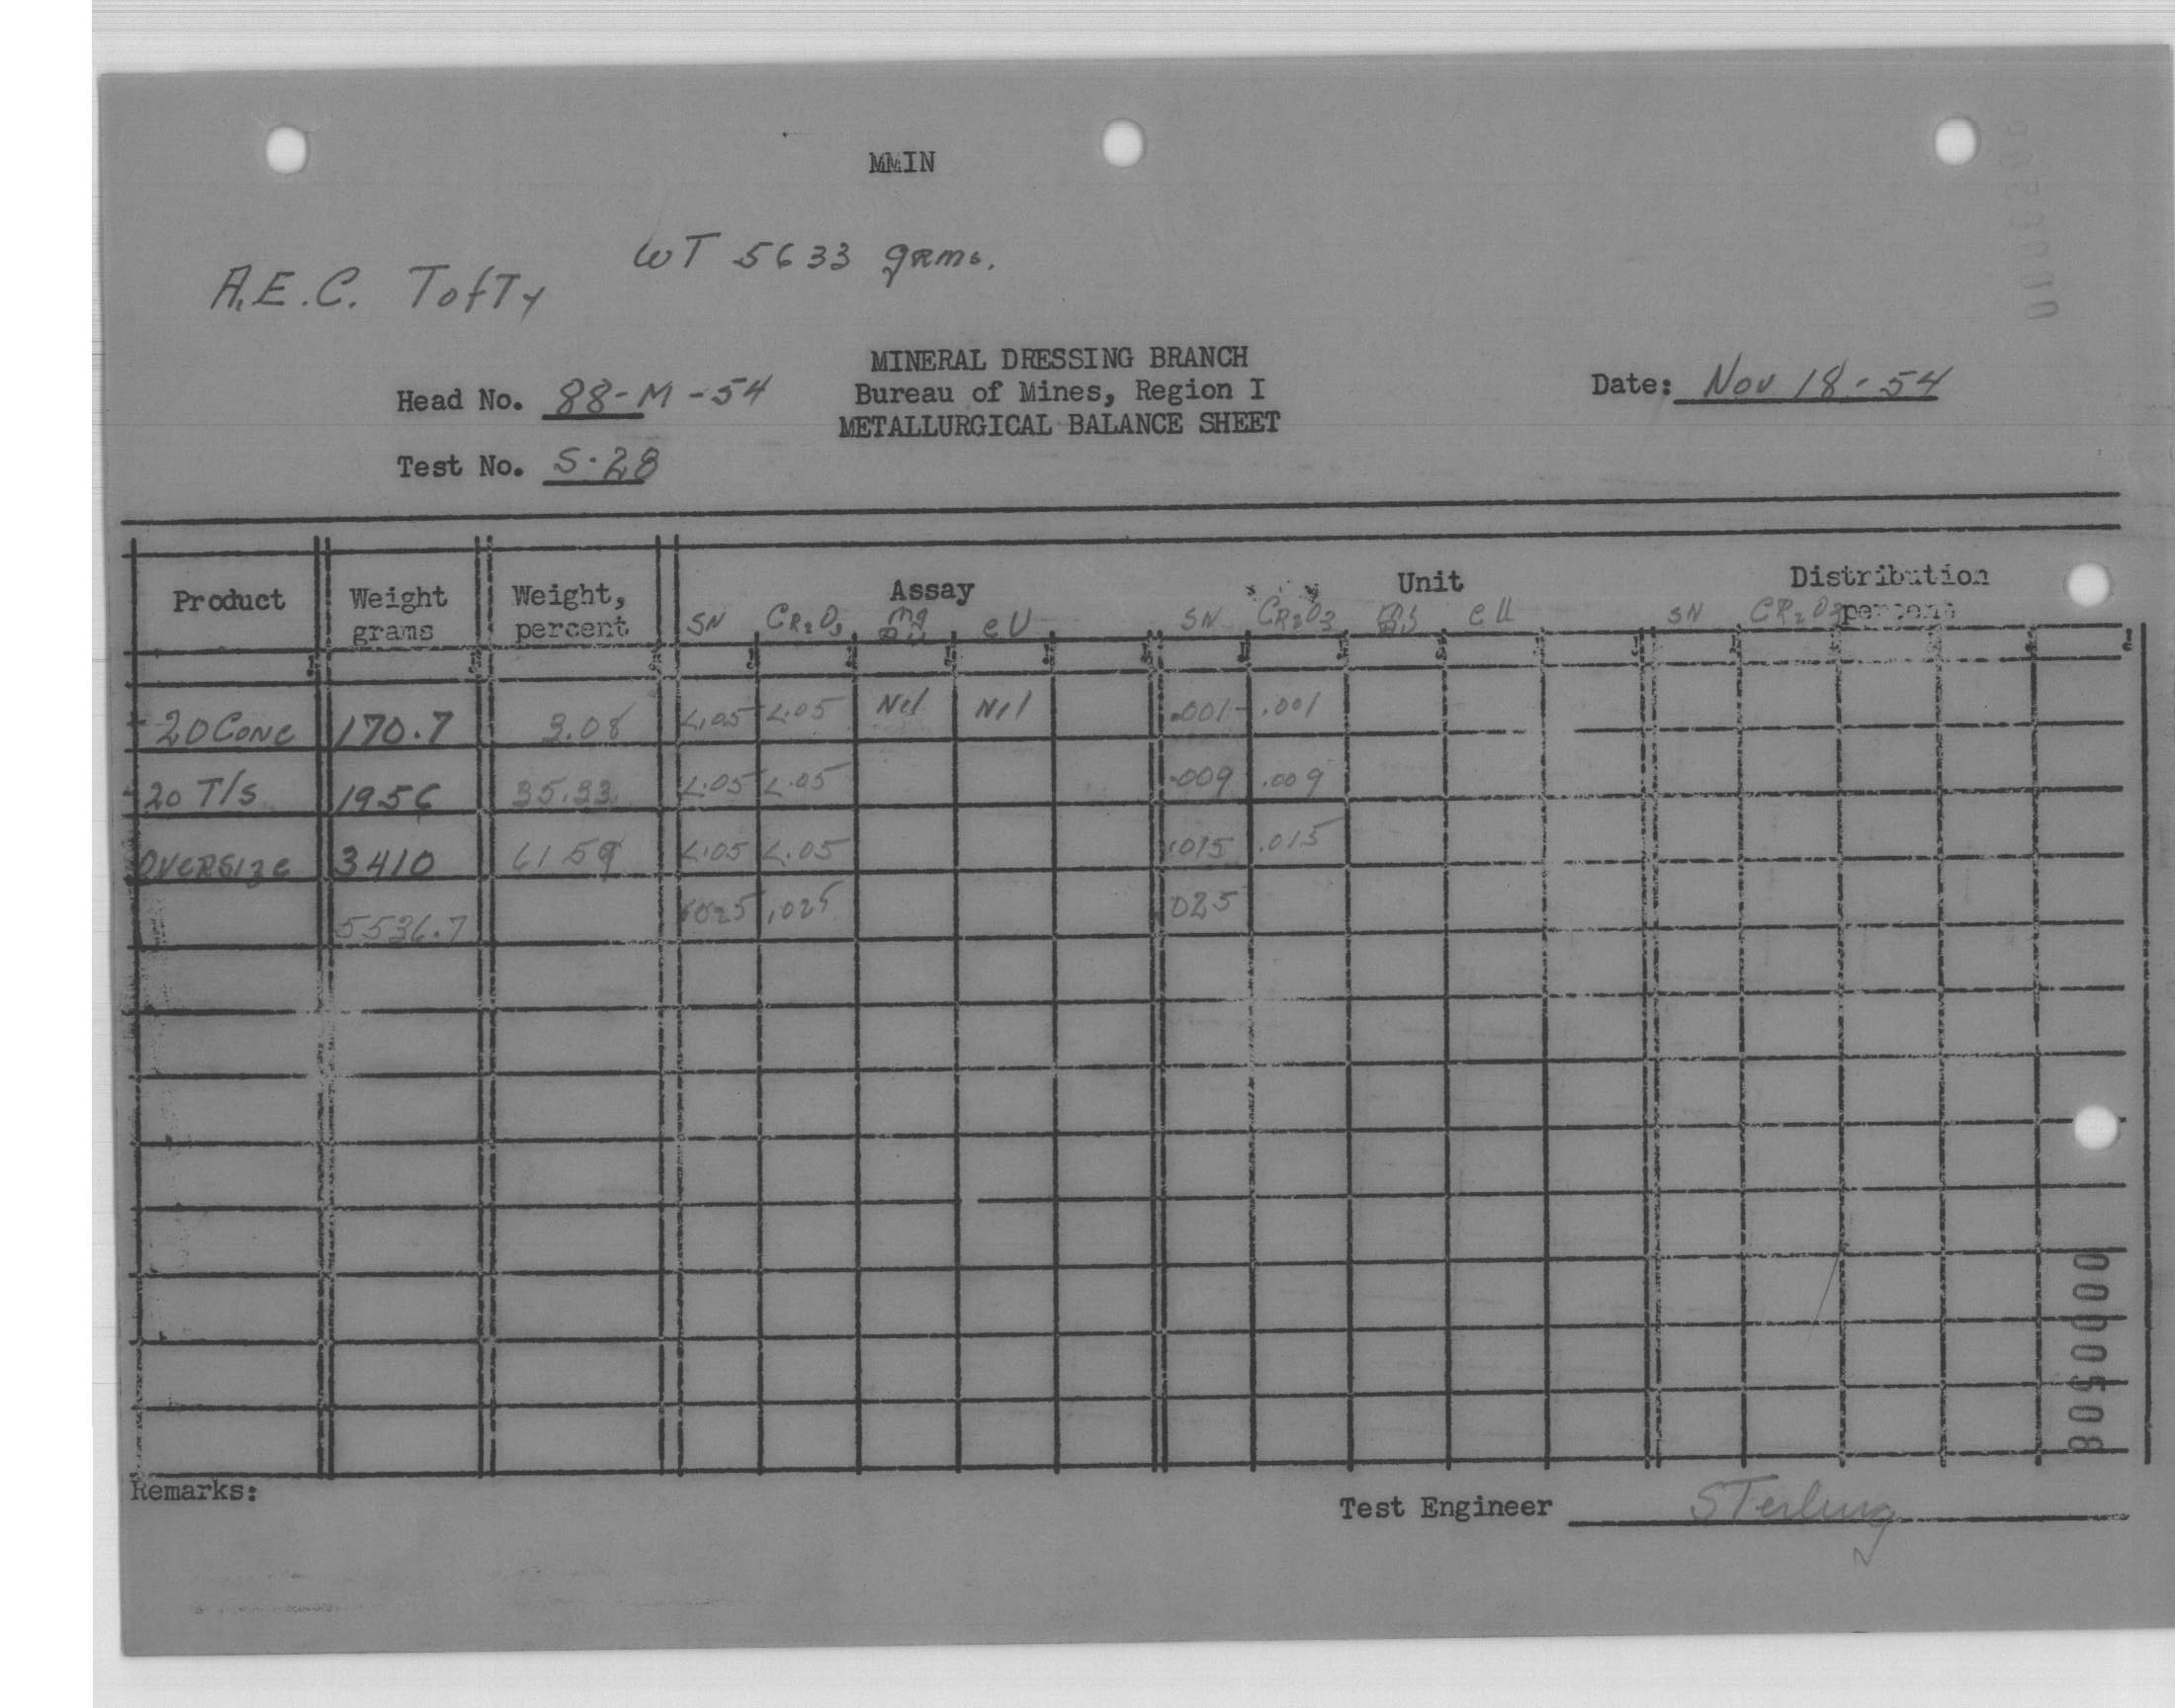 MMIN
WT 5633 gRms.
A.E.C. TofTy
MINERAL DRESSING BRANCH
Head No. 88-M-54 Bureau of Mines, Region I Date: Nov 18-54
METALLURGICAL BALANCE SHEET
Test No. S-28
Product Weight grams Weight, percent Assay Unit Distribution percent
SN CR2O3 mg eU SN CR2O3 eU SN CR2O3
-20 Conc 170.7 3.08 <.05 <.05 Nil Nil .001 .001
-20 T/s 1956 35.33 <.05 <.05 .009 .009
OVERSIZE 3410 61.59 <.05 <.05 .015 .015
5536.7 .025 .025 .025
0000508
Remarks:
Test Engineer STerling